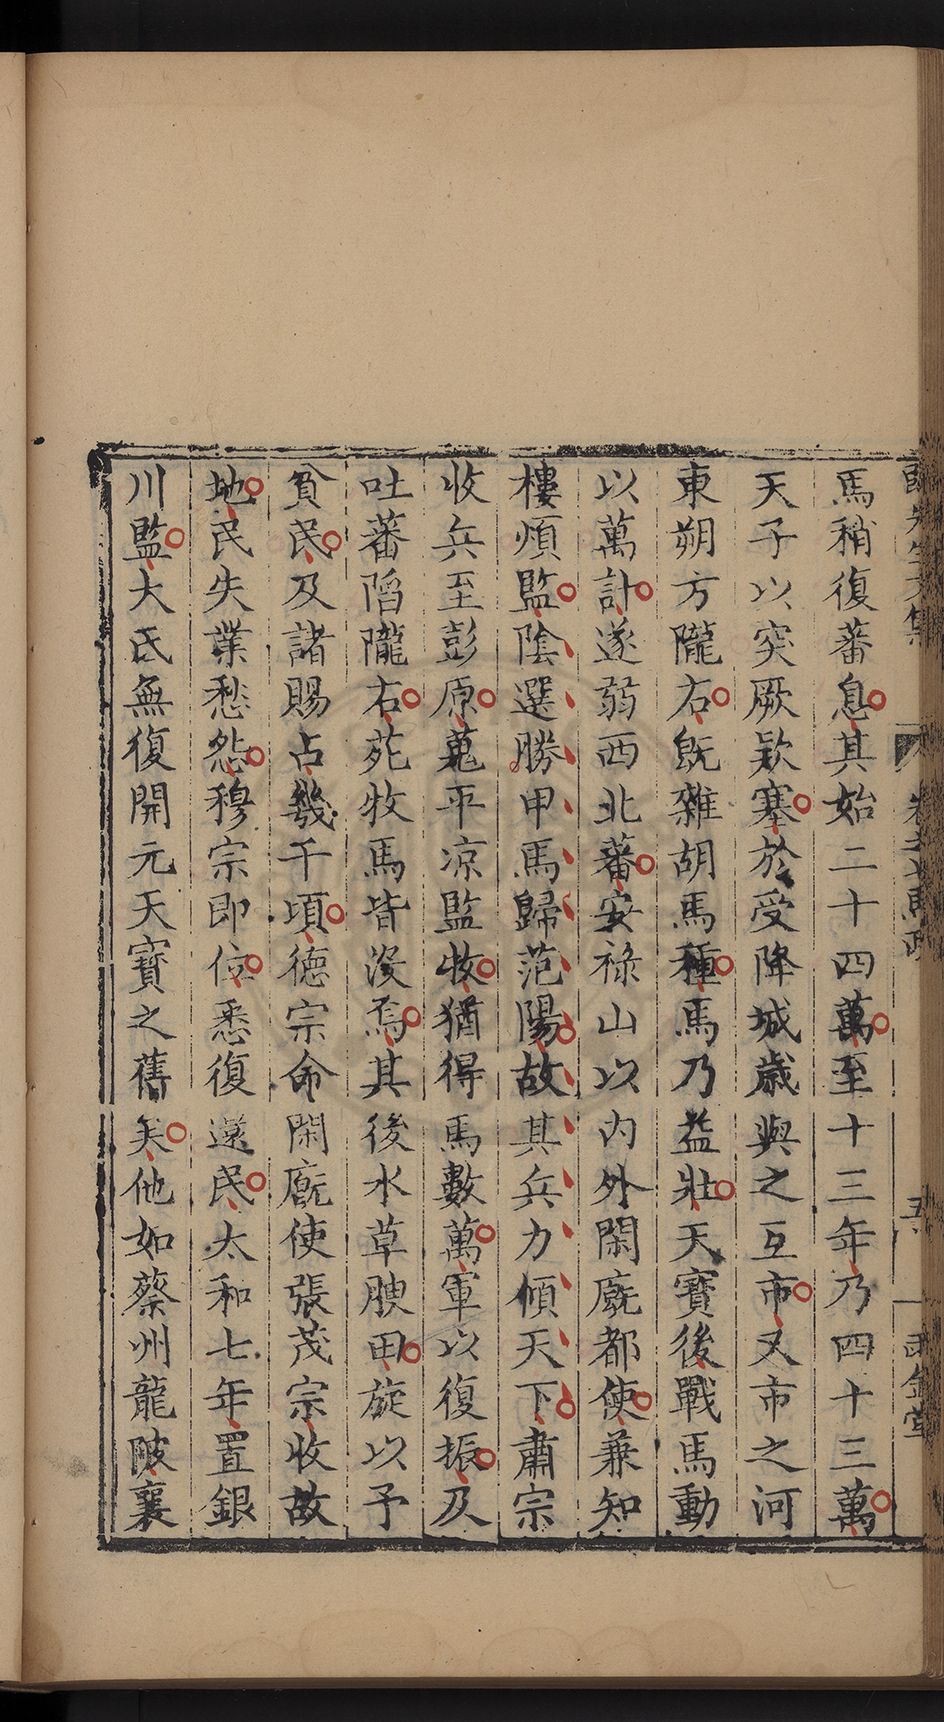 馬稍復蕃息其始二十四萬至十三年乃四十三萬
天子以突厥欵塞於受降城歲與之互市又市之河
東朔方隴右旣雜胡馬種馬乃益壯天寶後戰馬動
以萬計遂弱西北蕃安祿山以内外閑廐都使兼知
樓煩監陰選勝甲馬歸范陽故其兵力傾天下肅宗
收兵至彭原蒐平凉監牧猶得馬數萬軍以復振及
吐蕃陷隴右苑牧馬皆沒焉其後水草腴田旋以予
貧民及諸賜占幾千頃德宗命閑廐使張茂宗收故
地民失業愁怨穆宗即位悉復還民太和七年置銀
川監大氐無復開元天寶之舊矣他如蔡州龍陂襄